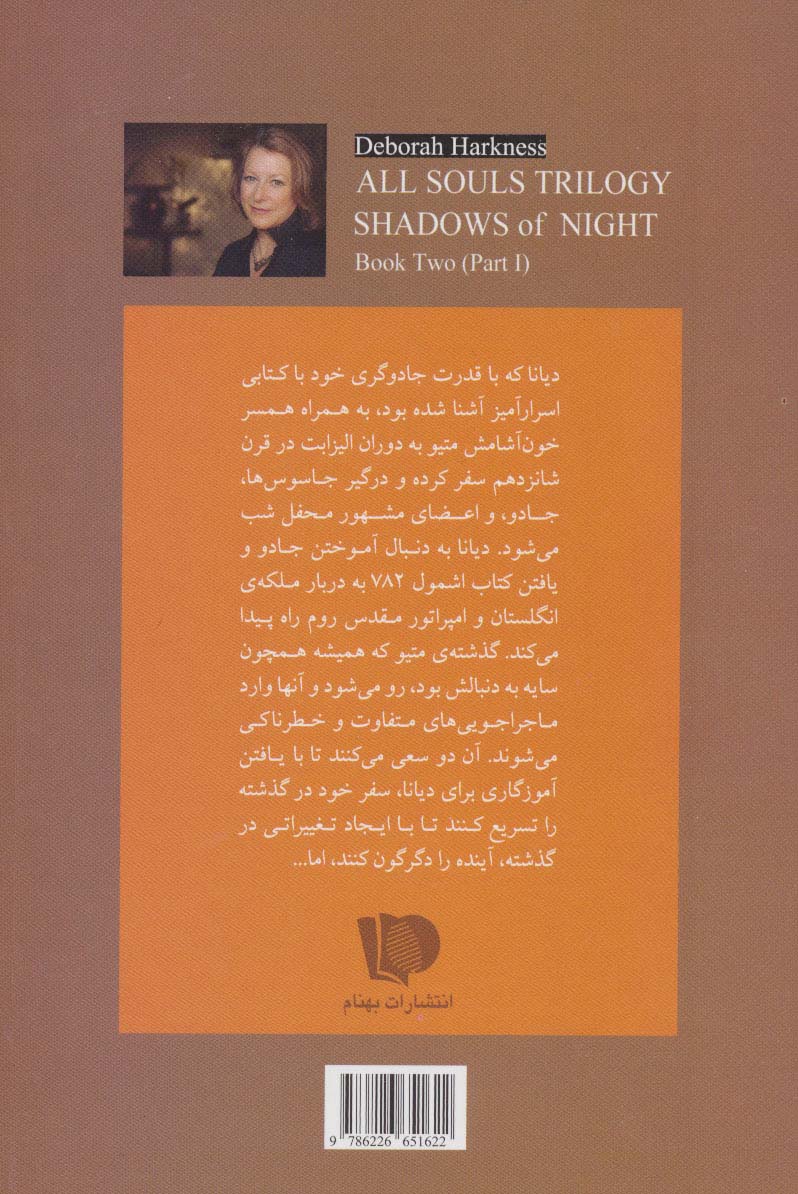 Deborah Harkness
ALL SOULS TRILOGY
SHADOWS of NIGHT
Book Two (Part I)
دیانا که با قدرت جادوگری خود با کتابی
اسرارآمیز آشنا شده بود، به همراه همسر
خون‌آشامش متیو به دوران الیزابت در قرن
شانزدهم سفر کرده و درگیر جاسوس‌ها،
جادو، و اعضای مشهور محفل شب
می‌شود. دیانا به دنبال آموختن جادو و
یافتن کتاب اشمول ۷۸۲ به دربار ملکه‌ی
انگلستان و امپراتور مقدس روم راه پیدا
می‌کند. گذشته‌ی متیو که همیشه همچون
سایه به دنبالش بود، رو می‌شود و آنها وارد
ماجراجویی‌های متفاوت و خطرناکی
می‌شوند. آن دو سعی می‌کنند تا با یافتن
آموزگاری برای دیانا، سفر خود در گذشته
را تسریع کنند تا با ایجاد تغییراتی در
گذشته، آینده را دگرگون کنند، اما...
انتشارات بهنام
9 786226 651622